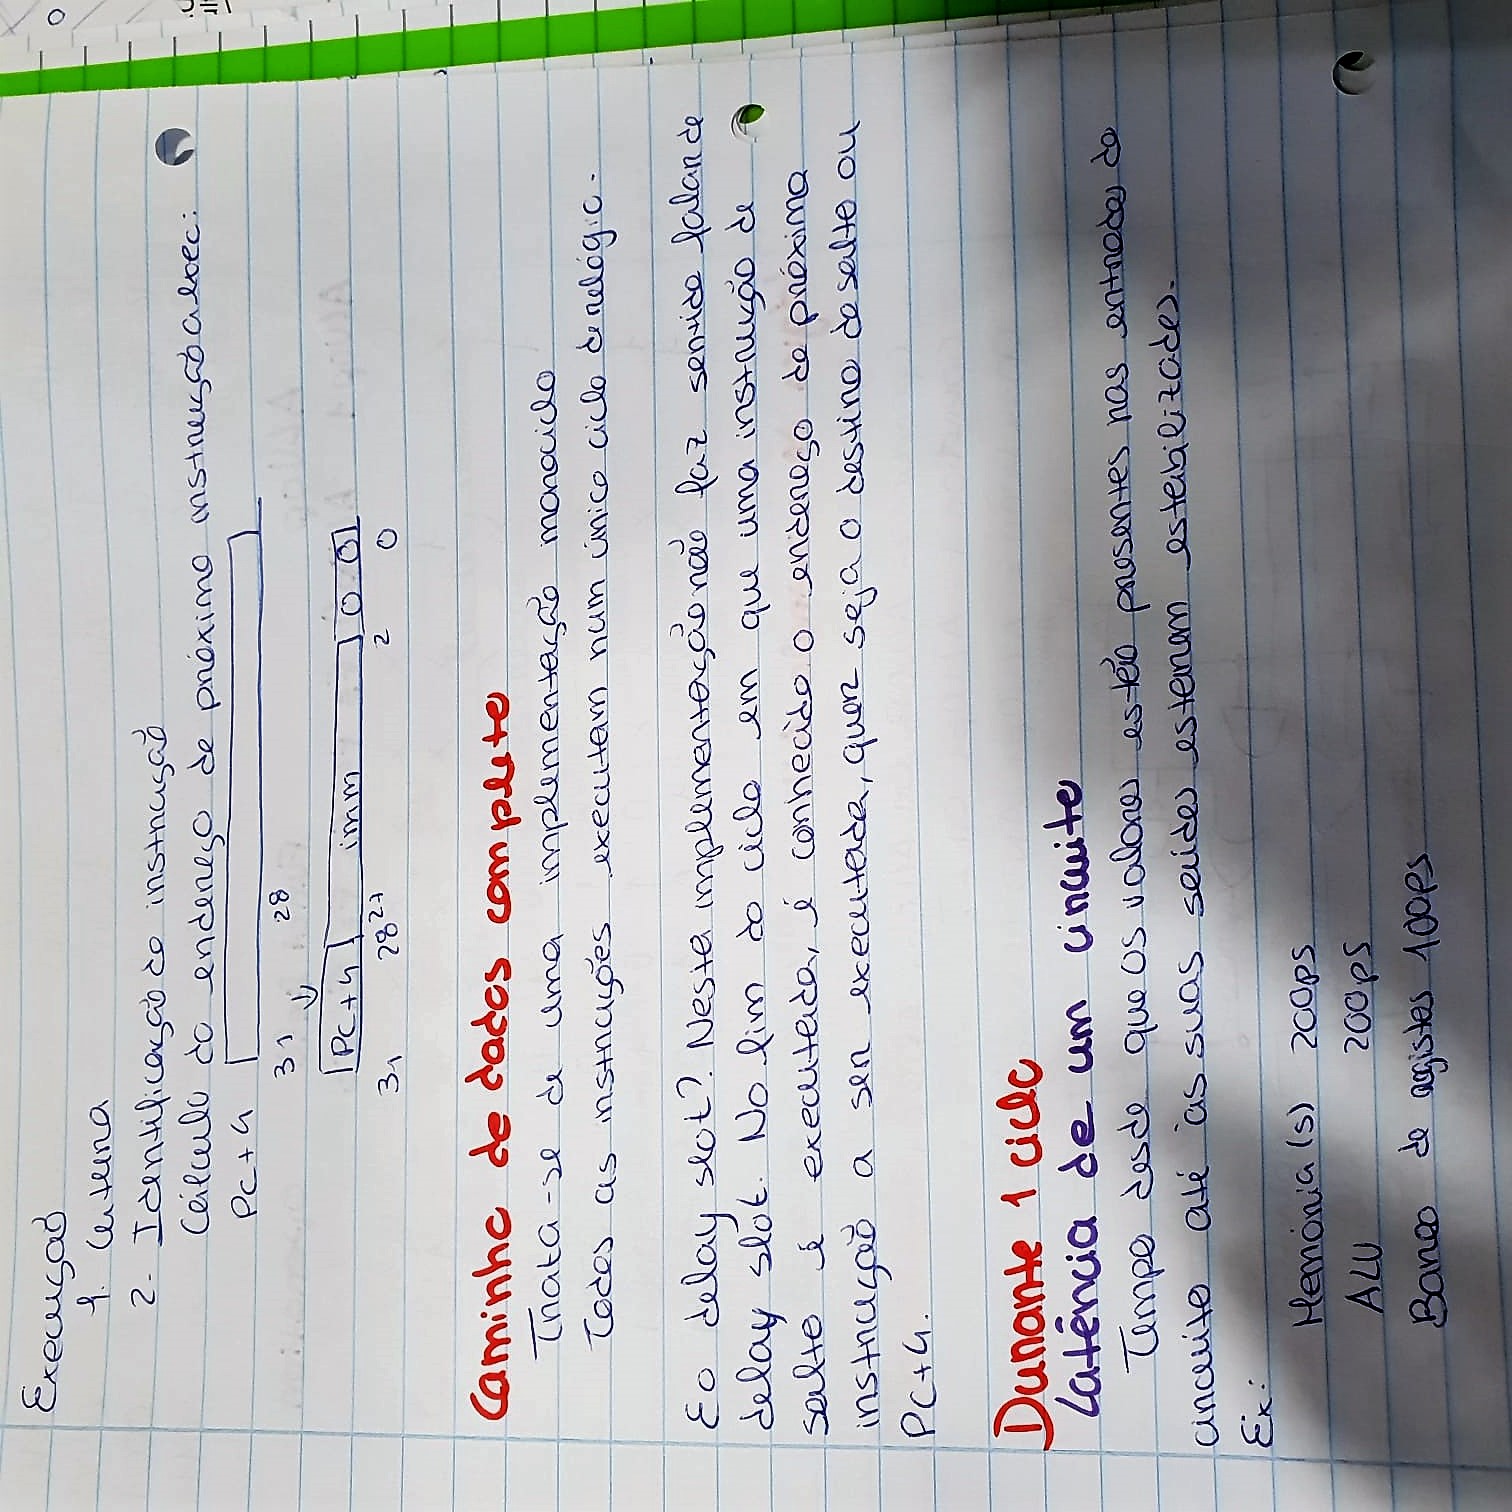 Execução
1. Leitura
2. Identificação da instrução
Cálculo do endereço da próxima instrução a exec:
PC+4
31 28
PC+4 imm 0 0
31 28 27 2 0
Caminho de dados completo
Trata-se de uma implementação monociclo
Todas as instruções executam num único ciclo de relógio.
E o delay slot? Nesta implementação não faz sentido falar de
delay slot. No fim do ciclo em que uma instrução de
salto é executada, é conhecido o endereço da próxima
instrução a ser executada, quer seja o destino do salto ou
PC+4.
Durante 1 ciclo
Latência de um circuito
Tempo desde que os valores estão presentes nas entradas do
circuito até às suas saídas estarem estabilizadas.
Ex:
Memória(s) 200ps
ALU 200ps
Banco de registos 100ps